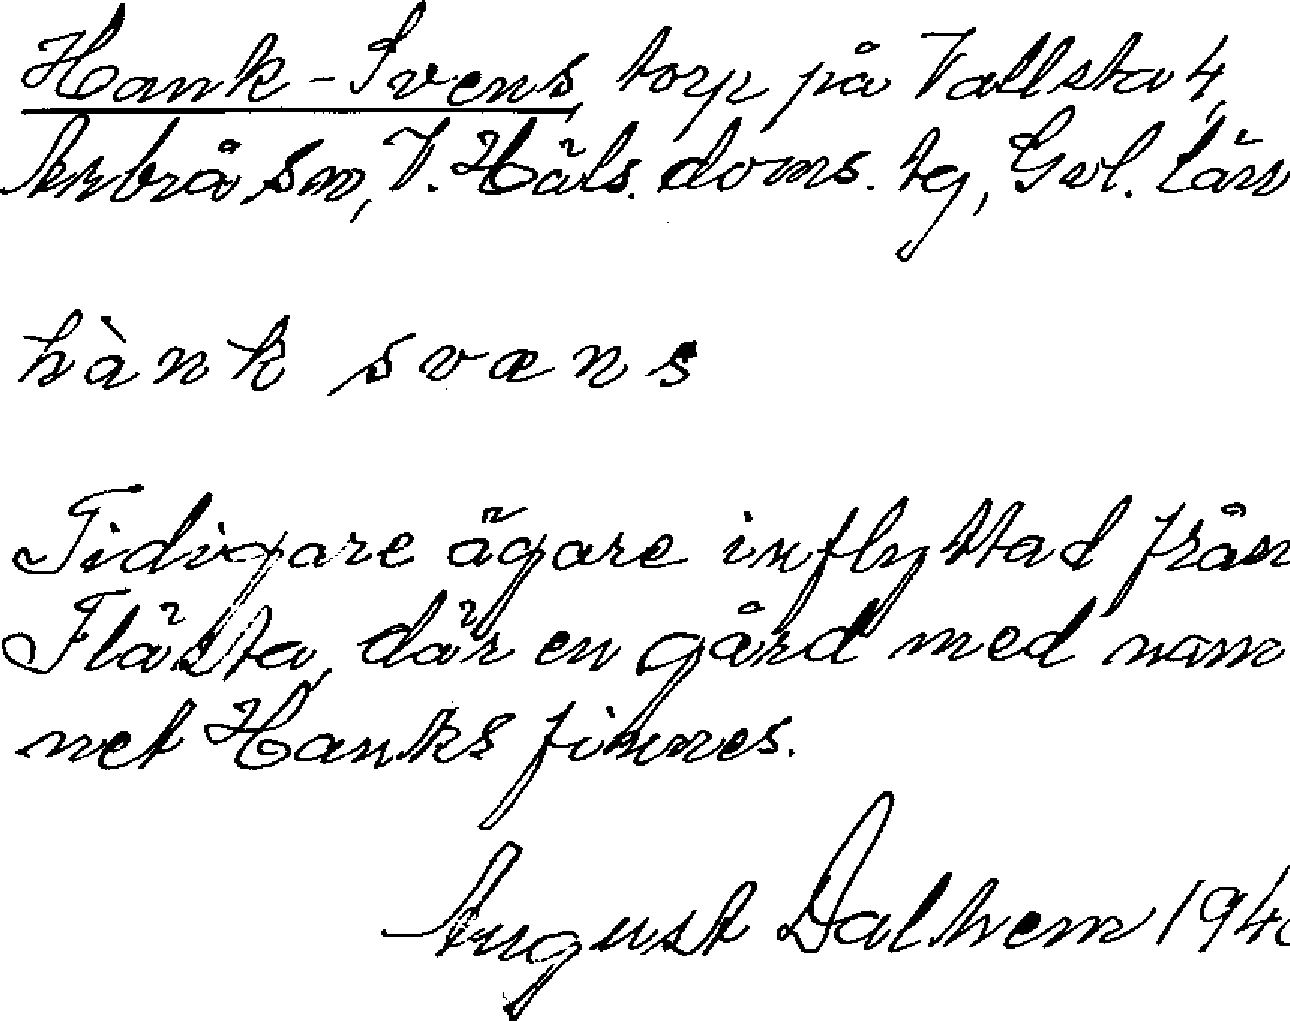 Hank-Svens, torp på Vallsta 4,
Arbrå sn, V. Häls. doms. tg, Gvl. län
hànk svæns
Tidigare ägare inflyttad från
Flästa, där en gård med nam
net Hanks finnes.
August Dalhem